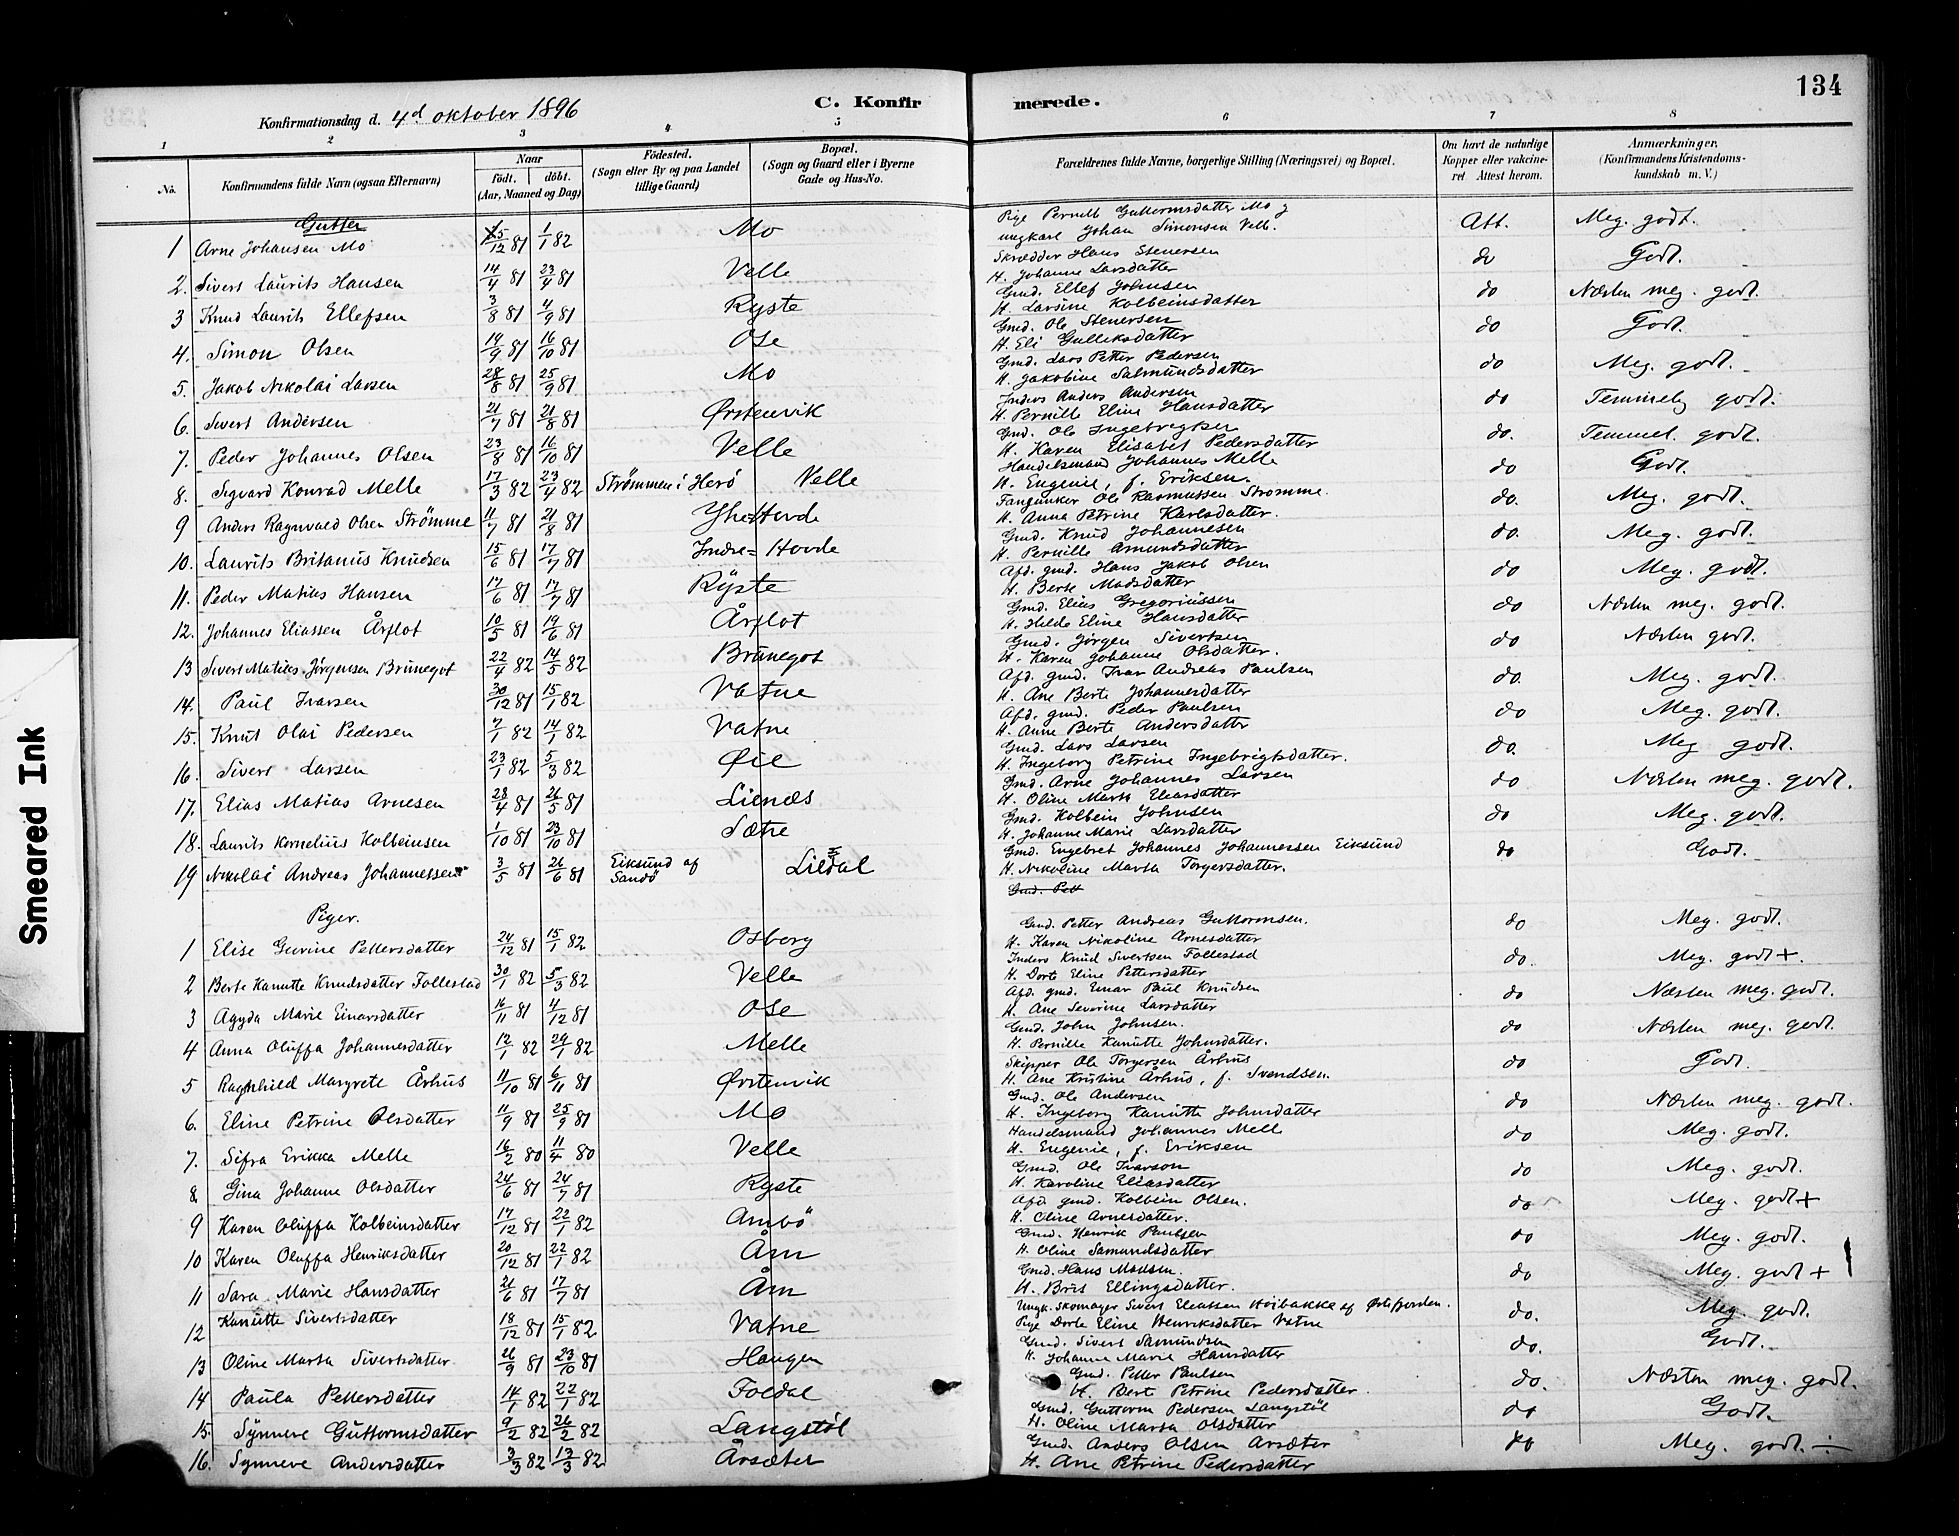 134
C. Konfirmerede.
Konfirmationsdag d. 4d oktober 1896
1 2 3 4 5 6 7 8
No. Konfirmandens fulde Navn (ogsaa Efternavn) Naar født. døbt. (Aar, Maaned og Dag) Fødested. (Sogn eller By og paa Landet tillige Gaard) Bopæl. (Sogn og Gaard eller i Byerne Gade og Hus-No. Forældrenes fulde Navne, borgerlige Stilling (Næringsvei) og Bopæl. Om havt de naturlige Kopper eller vakcineret. Attest herom. Anmærkninger, (Konfirmandens Kristendomskundskab m. V.)
Gutter
1 Arne Johansen Mo 25/12 81 1/1 82 Mo Pige Pernille Guttormsdatter Mo og ungkarl Johan Simonsen Velle. Att. Meg. godt.
2. Sivert Laurits Hansen 14/4 81 23/4 81 Velle Skrædder Hans Stenersen H. Johanne Larsdatter do Godt.
3 Knud Laurits Ellefsen 3/8 81 4/9 81 Ryste Gmd. Ellef Johnsen H. Larsine Kolbeinsdatter do Næsten meg. godt.
4. Simon Olsen 14/9 81 16/10 81 Ose Gmd. Ole Stenersen H. Eli Gulleksdatter do Godt.
5. Jakob Nikolai Larsen 28/8 81 25/9 81 Mo Gmd. Lars Petter Pedersen H. Jakobine Salmundsdatter do Meg. godt.
6. Sivert Andersen 21/7 81 21/8 81 Ørstenvik Inders Anders Andersen H. Pernille Eline Hansdatter do Temmelig godt.
7. Peder Johannes Olsen 23/8 81 16/10 81 Velle Gmd. Ole Ingebrigtsen H. Karen Elisabet Pedersdatter do. Temmel. godt.
8. Sigvard Konrad Melle 17/3 82 23/4 82 Strømmen i Herø Velle Handelsmand Johannes Melle H. Eugenie, f. Eriksen. do Godt.
9 Anders Ragnvald Olsen Strømme 11/7 81 21/8 81 Yhe=Hovde Ole Rasmussen Strømme. H. Anna Petrine Karlsdatter. do. Meg. godt.
10. Laurits Britanus Knudsen 15/6 81 17/7 81 Indre=Hovde Gmd. Knud Johannesen H. Pernille Amundsdatter do. Meg. godt.
11. Peder Matias Hansen 17/6 81 17/7 81 Ryste Afd. gmd. Hans Jakob Olsen H. Berte Madsdatter do Meg. godt.
12. Johannes Eliassen Årflot 10/5 81 19/6 81 Årflot Gmd. Elias Gregoriussen H. Hilde Eline Hansdatter do Næsten meg. godt.
13 Sivert Matias Jørgensen Brunegot 22/4 82 14/5 82 Brunegot Gmd. Jørgen Sivertsen H. Karen Johanne Olsdatter. do Næsten godt.
14. Paul Ivarsen 30/12 81 15/1 82 Vatne Afd. gmd. Ivar Andreas Paulsen H. Ane Berte Johannesdatter do. Meg. godt.
15. Knut Olai Pedersen 7/1 82 14/1 82 Vatne Afd. gmd. Peder Paulsen H. Anne Berte Andersdatter do Meg. godt.
16. Sivert Larsen 23/1 82 5/3 82 Øie Gmd. Lars Larsen H. Ingeborg Petrine Ingebrigtsdatter. do. Meg godt.
17. Elias Matias Arnesen 28/4 81 26/5 81 Lienæs Gmd. Arne Johannes Larsen H. Oline Marta Eliasdatter do Næsten meg. godt.
18. Laurits Kornelius Kolbeinsen 1/10 81 23/10 81 Sætre Gmd. Kolbein Johnsen H. Johanne Marie Larsdatter do Meg. godt.
19 Nikolai Andreas Johannessen 3/5 81 26/6 81 Eiksund af Sandø Lildal Gmd. Engebret Johannes Johannessen Eiksund H. Nikoline Marta Torgersdatter. do Godt.
Gmd. Pett
Piger.
1 Elise Gurine Pettersdatter 24/12 81 15/1 82 Osborg Gmd. Petter Andreas Guttormsen. H. Karen Nikoline Arnesdatter do Meg. godt.
2 Berte Kanutte Knudsdatter Follestad 30/1 82 5/3 82 Velle Inders Knud Sivertsen Follestad H. Dorte Eline Pettersdatter do. Meg. godt +.
3 Agyda Marie Einarsdatter 16/11 81 4/12 81 Ose Afd. gmd. Einar Paul Knudsen H. Ane Severine Larsdatter do Næsten meg. godt.
4 Anna Oluffa Johannesdatter 12/1 82 29/1 82 Melle Gmd. John Johnsen. H. Pernille Kanutte Johnsdatter. do Næsten meg. godt.
5 Ragnhild Margrete Århus 11/10 81 6/11 81 Ørstenvik Skipper Ole Torgersen Århus H. Ane Kristine Århus, f. Svendsen. do Godt.
6. Eline Petrine Olsdatter 11/9 81 25/9 81 Mo Gmd. Ole Andersen H. Ingeborg Kanutte Johnsdatter do Næsten meg. godt.
7. Sifra Erikka Melle 16/2 80 11/4 80 Velle Handelsmand Johannes Melle H. Eugenie, f. Eriksen do Meg. godt.
8. Gina Johanne Olsdatter 24/6 81 24/7 81 Ryste Gmd. Ole Ivarson H. Karoline Eliasdatter do Meg. godt.
9 Karen Oluffa Kolbeinsdatter 17/12 81 22/1 82 Ambø Afd. gmd. Kolbein Olsen. H. Oline Arnesdatter. do Meg. godt +
10 Karen Oluffa Henriksdatter 20/12 81 22/1 82 Åm Gmd. Henrik Paulsen H. Oline Samundsdatter do Meg. godt.
11 Sara Marie Hansdatter 21/6 81 17/7 81 Åm Gmd. Hans Madsen. H. Brit Ellingsdatter. do Meg. godt +
12 Kanutte Sivertsdatter 18/12 81 15/1 82 Vatne Ungk. Skomager Sivert Eleassen Høibakke af Ørstefjorden. Pige Dorte Eline Henriksdatter Vatne do. Meg. godt.
13 Oline Marta Sivertsdatter 26/9 81 23/10 81 Haugen Gmd. Sivert Samundsen H. Johanne Marie Hansdatter do. Godt.
14 Paula Pettersdatter 14/1 82 22/1 82 Foldal Gmd. Petter Paulsen H. Berte Petrine Pedersdatter do. Næsten meg. godt.
15. Synneve Guttormsdatter 9/2 82 26/2 82 Langstøl Gmd. Guttorm Pedersen Langstøl H. Oline Marta Olsdatter do Godt.
16. Synneve Andersdatter 3/3 82 13/3 82 Årsæter Gmd. Anders Olsen Arsæter H. Ane Petrine Pedersdatter do Meg. godt. ÷
Smeared Ink